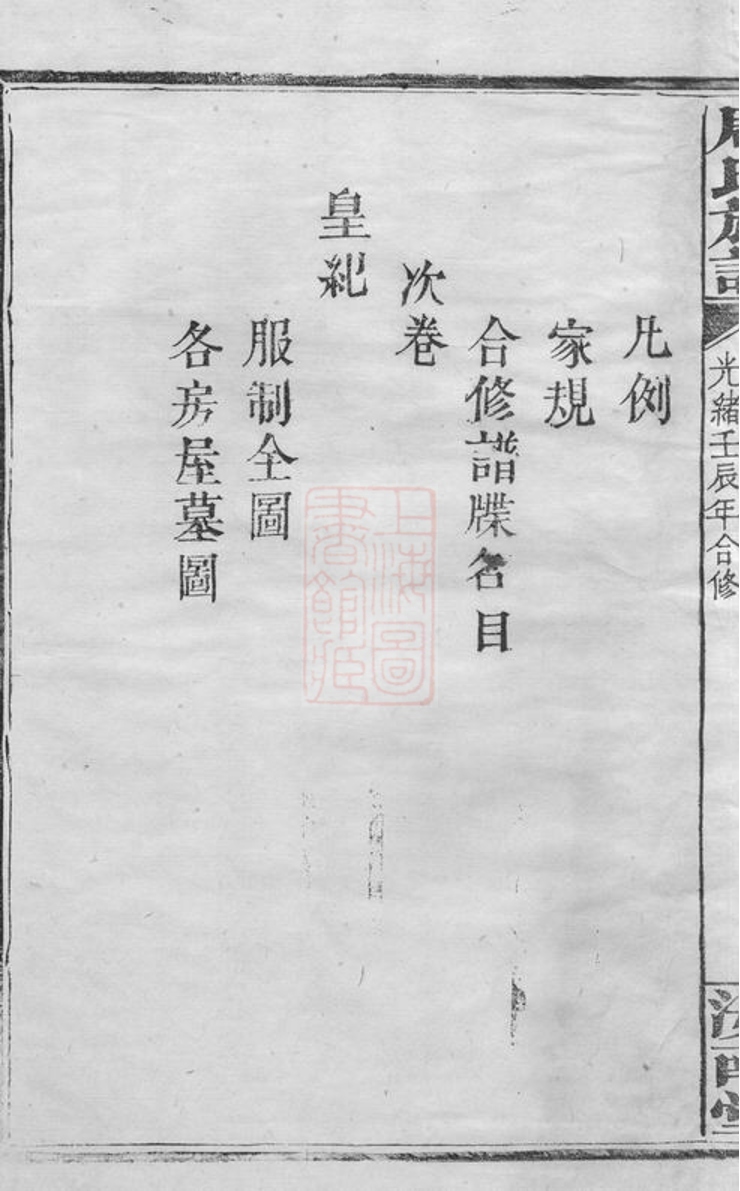 周氏族譜
光緒壬辰年合修
汝南堂
凡例
家規
合修譜牒名目
次卷
皇紀
服制全圖
各房屋墓圖
上海圖
書館藏